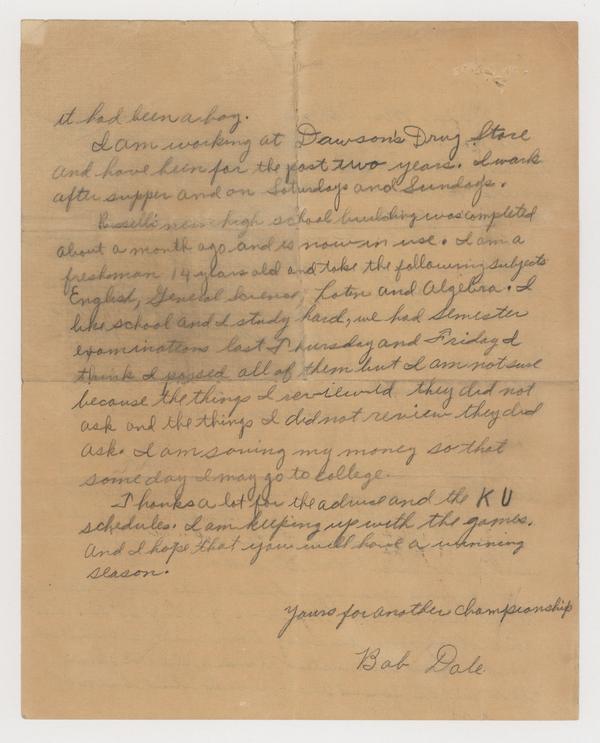 it had been a boy.
I am working at Dawson's Drug Store
and have been for the past two years. I work
after supper and on Saturdays and Sundays.
Russell's new high school building was completed
about a month ago and is now in use. I am a
freshman 14 years old and take the following subjects
English, General Science, Latin and Algebra. I
like school and I study hard, we had Semester
examinations last Thursday and Friday I
think I passed all of them but I am not sure
because the things I reviewed they did not
ask and the things I did not review they did
ask. I am saving my money so that
some day I may go to college.
Thanks a lot for the advice and the KU
schedules. I am keeping up with the games.
And I hope that you will have a winning
season.
Yours for another Championship
Bob Dole